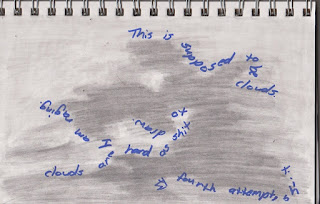 This is supposed to be clouds.
clouds are hard as shit to draw.
I am raging.
fourth attempt @ it.